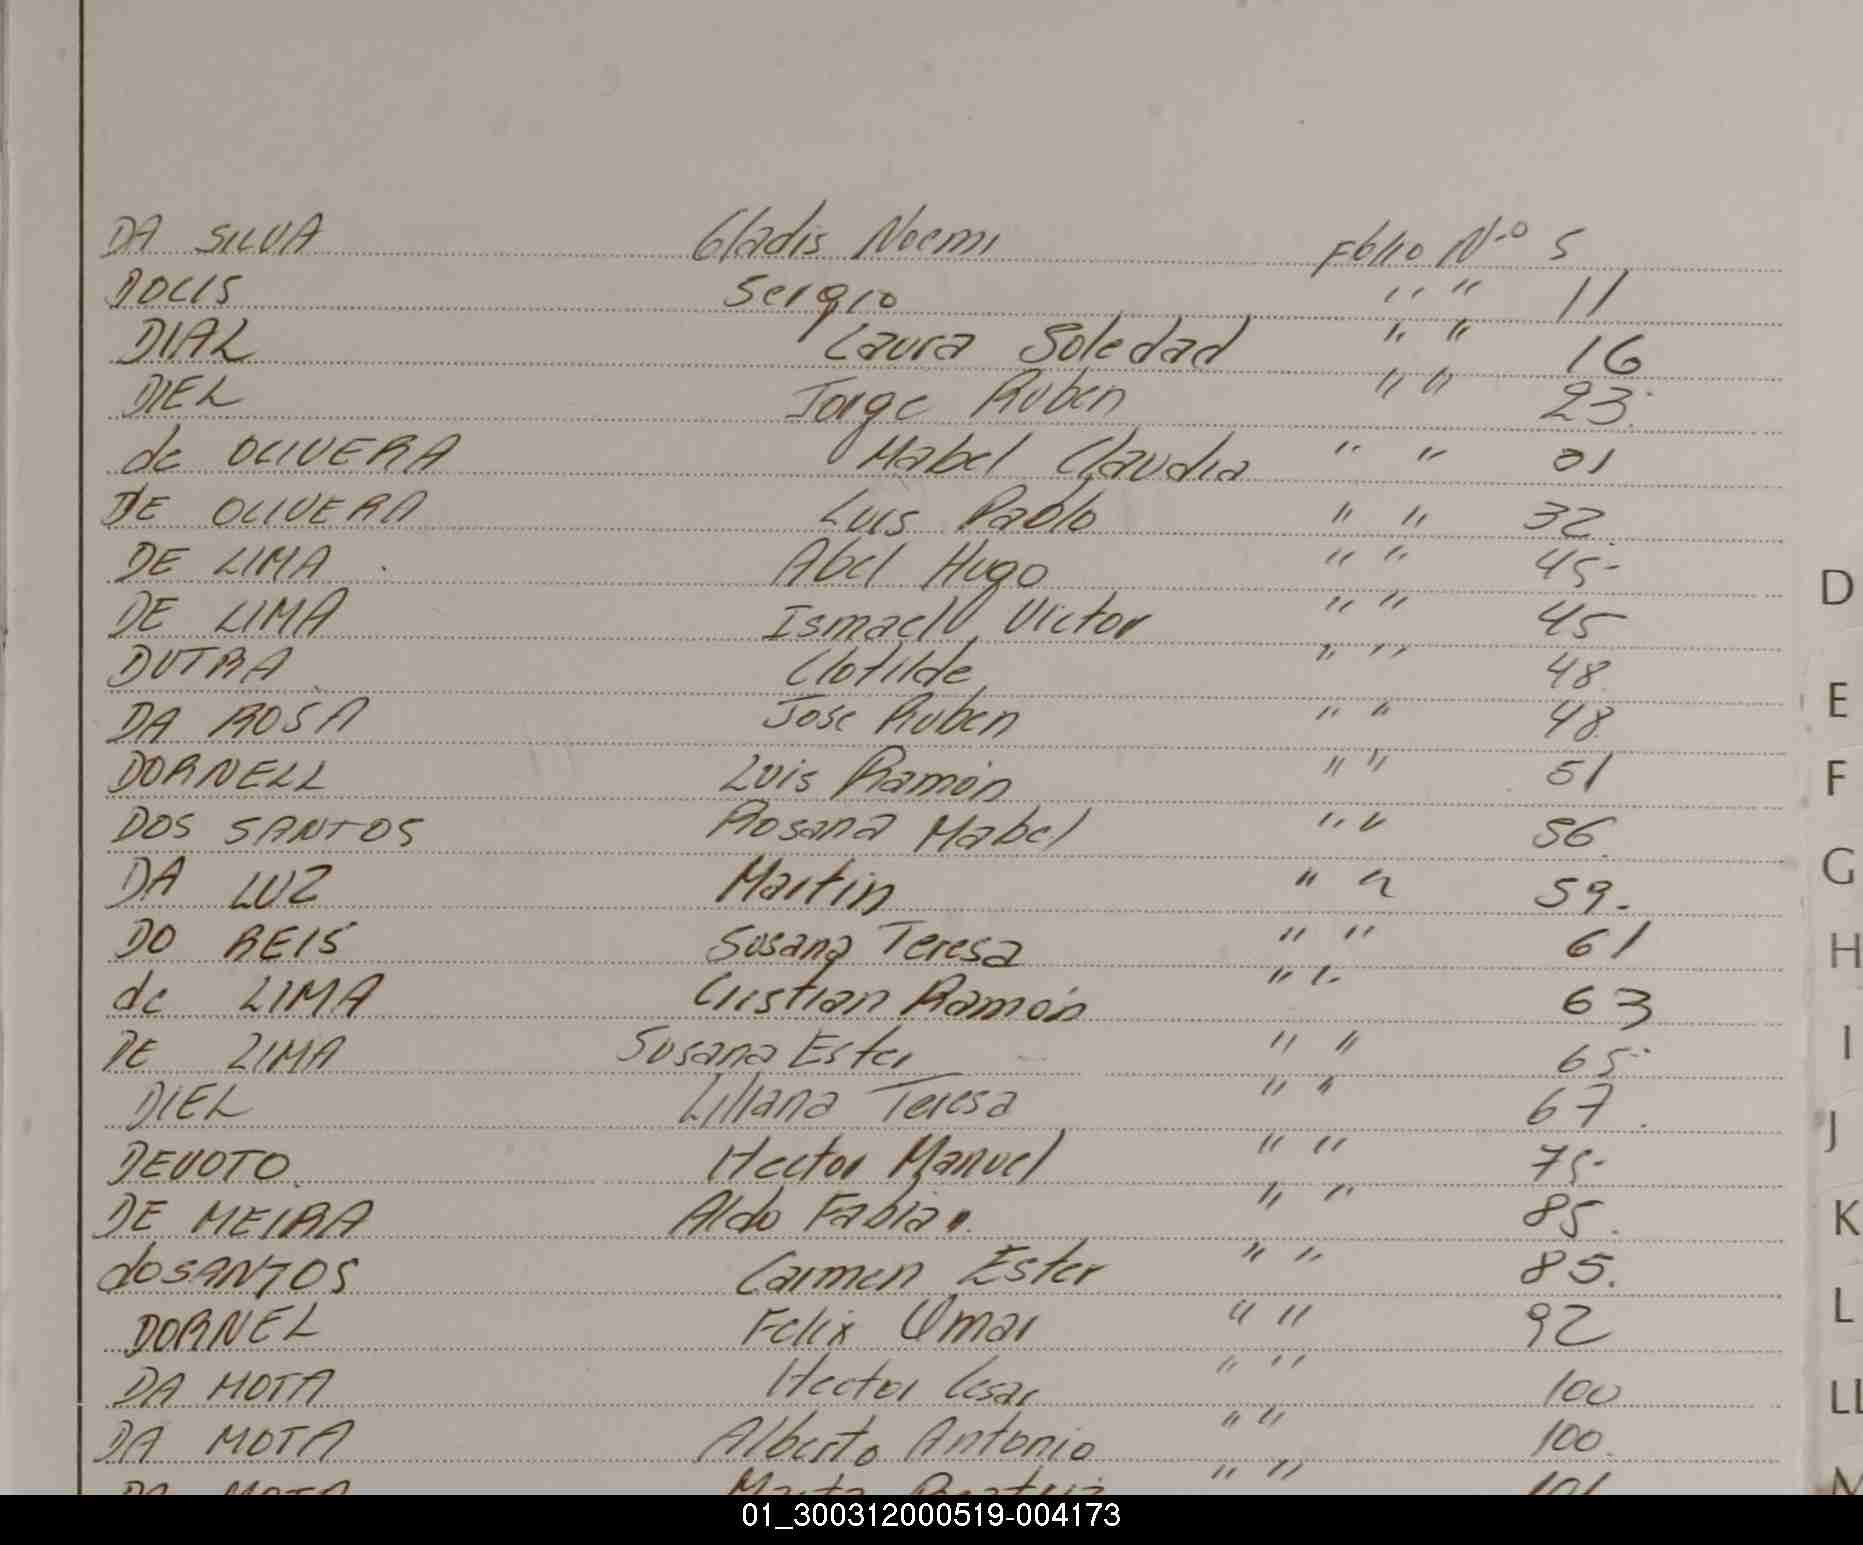 DA SILVA Gladis Noemi Folio N-o 5
DOCIS Sergio " " 11
DIAL Laura Soledad " " 16
DIEL Jorge Ruben " " 23.
de OLIVERA Mabel Claudia " " 31
DE OLIVERA Luis Pablo " " 32.
DE LIMA Abel Hugo " " 45
DE LIMA Ismael Victor " " 45
DUTRA Clotilde " " 48
DA ROSA Jose Ruben " " 48
DORNELL Luis Ramón " " 51
DOS SANTOS Rosana Mabel " " 56
DA LUZ Martin " " 59.
DO REIS Susana Teresa " " 61
de LIMA Cristian Ramón " " 63
DE LIMA Susana Ester " " 65
DIEL Liliana Teresa " " 67.
DEVOTO Hector Manuel " " 75
DE MEIRA Aldo Fabian " " 85.
doSANTOS Carmen Ester " " 85.
DORNEL Felix Omar " " 92
DA MOTA Hector Cesar " " 100
DA MOTA Alberto Antonio " " 100.
DA MOTA Marta Beatriz " " 101
D
E
F
G
H
I
J
K
L
LL
M
01_300312000519-004173